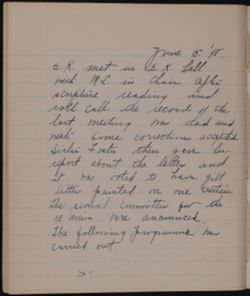 June 15. '98.
E.K. met in E.K. Hall
with M.L. in Chair. After
scripture reading and
roll call the record of the
last meeting was read and
with some correction accepted
then gave her
report about the letter and
it was voted to have gilt
letter painted on one
The several committee for the
were announced.
The following programme was
carried out